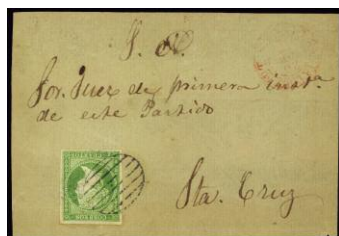 S. N.
Sor. Juez de primera inst.ª
de este Partido
Sta. Cruz